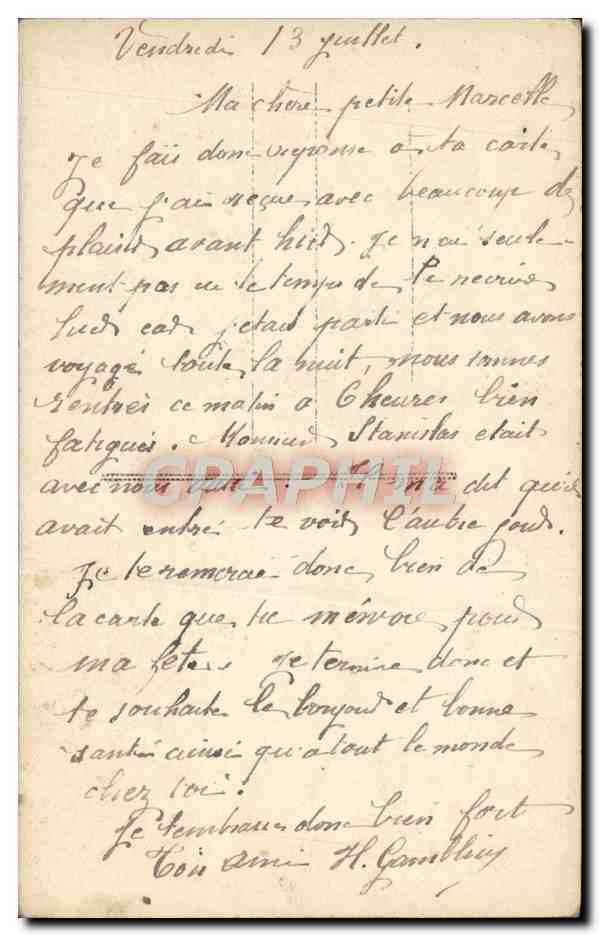 Vendredi 13 juillet.
Ma chère petite Marcelle
Je fais donc reponse a ta carte
que j'ai reçue avec beaucoup de
plaisir avant hier. Je n'ai seule-
ment pas eu le temps de te recrire
car j'etais parti et nous avons
voyagé toute la nuit, nous sommes
rentrés ce matin a 6 heures bien
fatigués. Monsieur Stanislas etait
avec nous Il m'a dit qu'il
avait entré te voir l'autre jour.
Je te remerci donc bien de
la carte que tu m'envoie pour
ma fête Je termine donc et
te souhaite le bonjour et bonne
santé ainsi qu'a tout le monde
chez toi.
Je t'embrasse donc bien fort
Ton ami H.
CPAPHIL